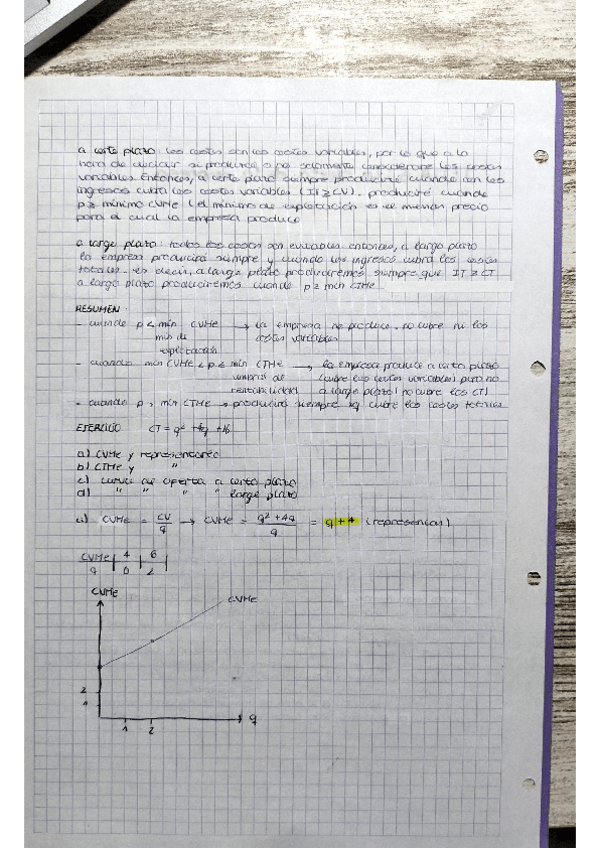 a corto plazo: los costes son los costes variables, por lo que a la
hora de decidir si producire o no solamente considerare los costes
variables. Entonces, a corto plazo siempre produciré cuando con los
ingresos cubra los costes variables (IT ≥ CV). produciré cuando
p ≥ mínimo CVMe (el mínimo de explotación es el menor precio
para el cual la empresa produce
a largo plazo: todos los costes son evitables. entonces, a largo plazo
la empresa producirá siempre y cuando los ingresos cubra los costes
totales. es decir, a largo plazo produciremos siempre que IT ≥ CT
a largo plazo produciremos cuando p ≥ min CTMe.
RESUMEN:
- cuando p < min CVMe → la empresa no produce. no cubre ni los
min de costes variables
explotación
- cuando min CVMe < p < min CTMe → la empresa produce a corto plazo
umbral de (cubre los costes variables) pero no
rentabilidad a largo plazo (no cubre los CT)
- cuando p > min CTMe → producirá siempre xq cubre los costes
EJERCICIO CT = q² + 4q + 16
a) CVMe y representarlo
b) CTMe y "
c) curva de oferta a corto plazo
d) " " " " largo plazo
a) CVMe = CV/q → CVMe = q² + 4q/q = q + 4 (representar)
CVMe | 4 | 6 |
q | 0 | 2 |
CVMe
CVMe
2
1
1 2 q